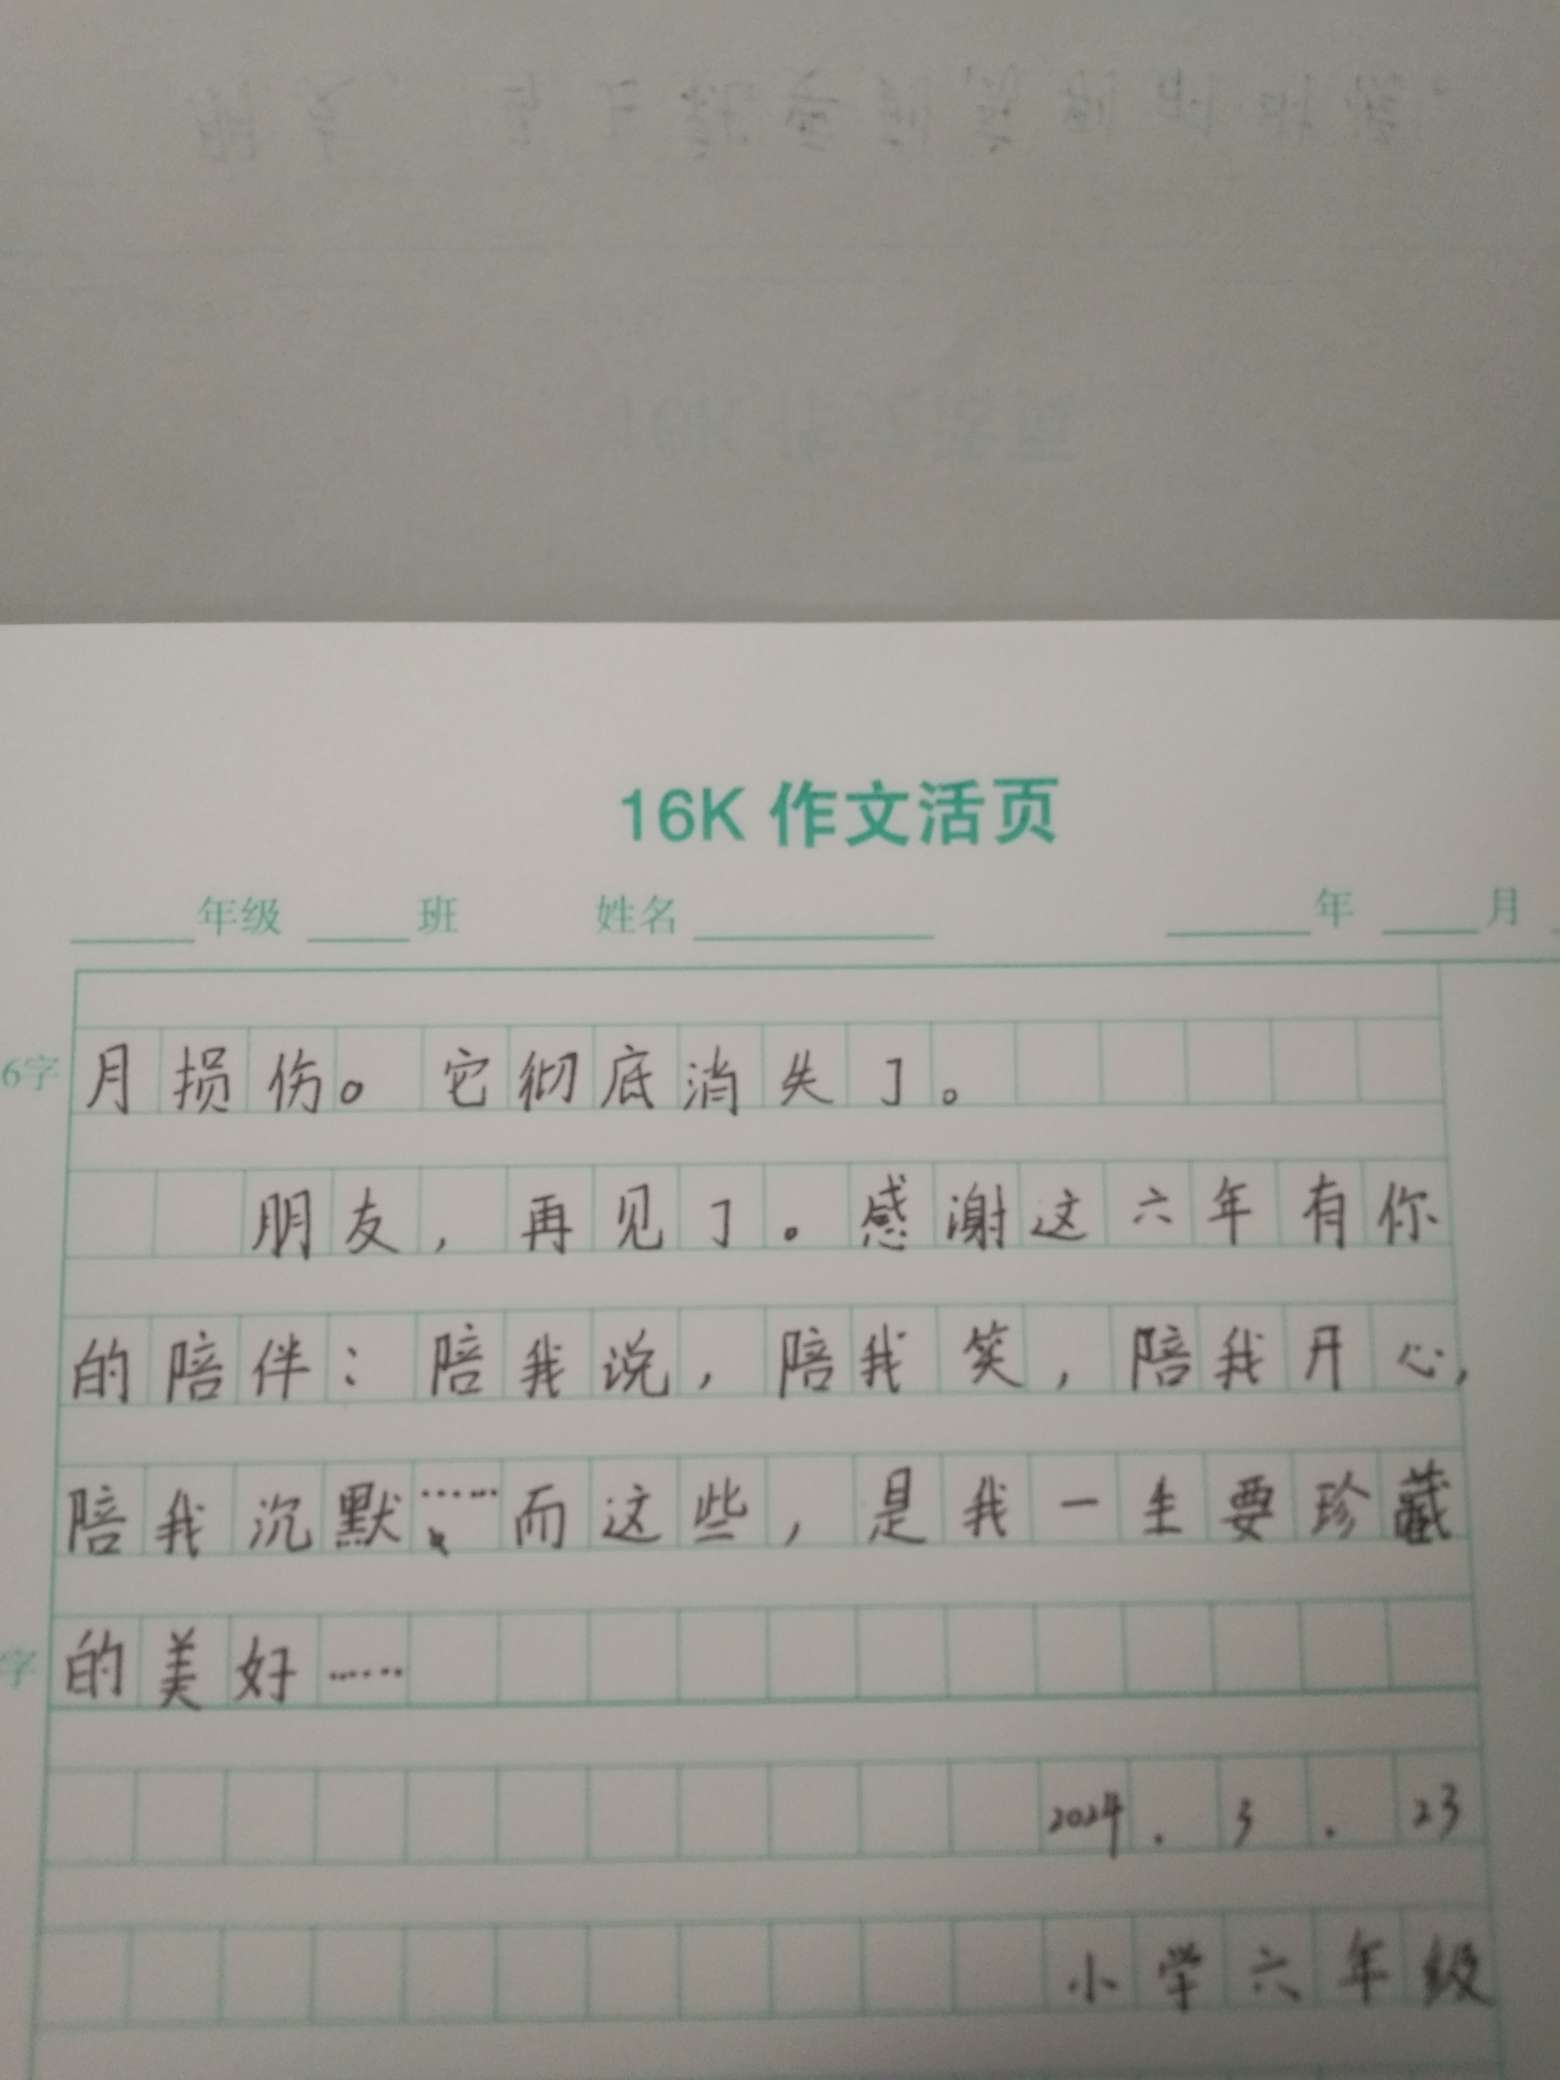 16K 作文活页
年级 班 姓名 年 月
6字
月损伤。它彻底消失了。
朋友，再见了。感谢这六年有你
的陪伴：陪我说，陪我笑，陪我开心，
陪我沉默……而这些，是我一生要珍藏
字
的美好……
2024.3.23
小学六年级